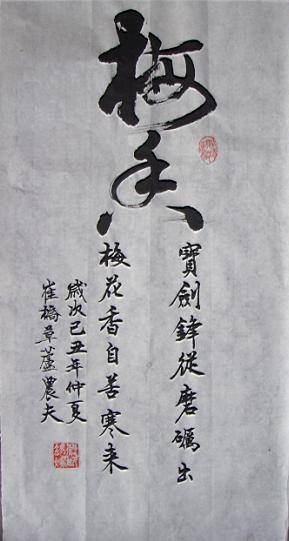 梅香
寶劍鋒從磨礪出
梅花香自苦寒来
歲次己丑年仲夏
崔橋草蘆農夫